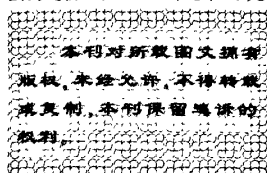 本刊对所载图文拥有
版权。未经允许,不得转载
或复制,本刊保留追诉的
权利。